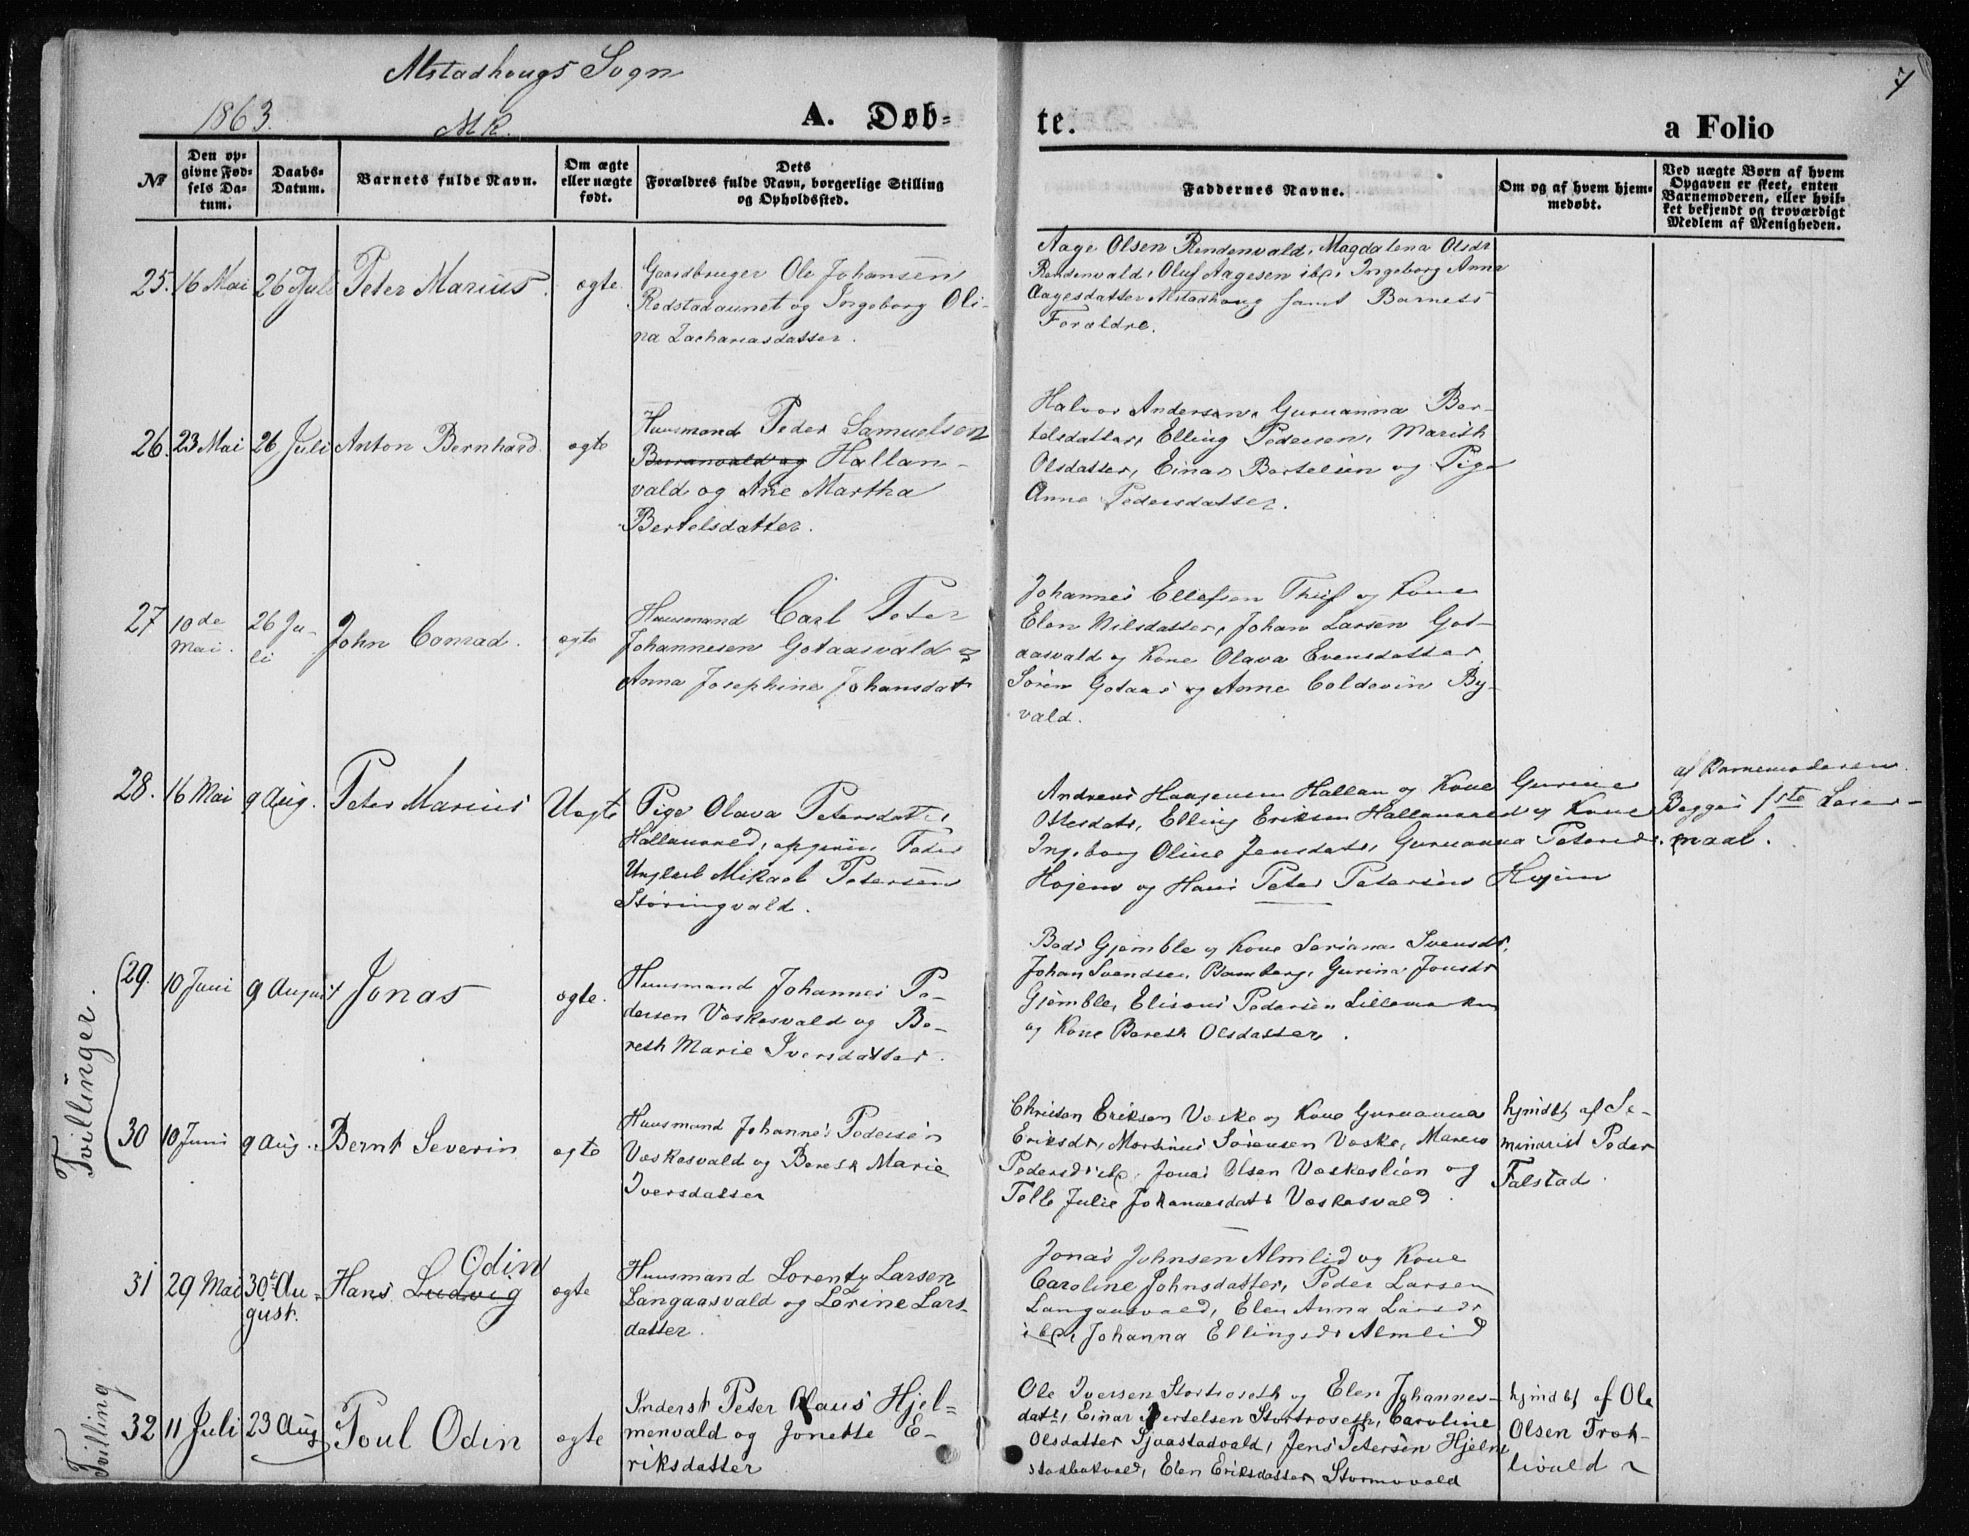 Alstadhougs Sogn
1863.
MK.
A. Døb=
te.
a Folio
7
№
Den op=
givne Fød=
sels Da=
tum.
Daabs=
Datum.
Barnets fulde Navn.
Om ægte
eller uægte
født.
Dets
Forældres fulde Navn, borgerlige Stilling
og Opholdssted.
Faddernes Navne.
Om og af hvem hjem=
medøbt.
Ved uægte Børn af hvem
Opgaven er skeet, enten
Barnemoderen, eller hvil=
ket bekjendt og troværdigt
Medlem af Menigheden.
25. 16 Mai 26 Juli Peter Marius. ægte.
Gaardbruger Ole Johansen
Rodstadaunet og Ingeborg Oli-
na Zachariasdatter.
Aage Olsen Rendenvald, Magdalena Olsdr
Rendenvald, Oluf Aagesen ibd, Ingeborg Anna
Aagesdatter Alstadhoug samt Barnets
Forældre.
26. 23 Mai 26 Juli Anton Bernhard ægte
Huusmand Peder Samuelsen
Buranvald og Hallan-
vald og Ane Martha
Bertelsdatter.
Halvor Andersen, Guruanna Ber-
telsdatter, Elling Pedersen, Marith
Olsdatter, Einar Bertelsen og Pige
Anne Pedersdatter.
27 10de Mai. 26 Ju-
li John Conrad. ægte
Huusmand Carl Peter
Johannesen Gotaasvald og
Anna Josephine Johansdat
Johannes Ellefsen Thuf og Kone
Elen Nilsdatter, Johan Larsen Got-
aasvald og Kone Olava Evensdatter
Søren Gotaas og Anne Coldevin By-
vald.
28. 16 Mai 9 Aug. Peter Marius Uægte
Pige Olava Petersdatt,
Hallanvald, opgiven Fader
Ungkarl Mikael Petersen
Støringvald.
Andreas Haagensen Hallan og Kone Gurine
Ottesdatr, Elling Eriksen Hallanvald og Kone
Ingeborg Oline Jensdatr, Guruanna Petersdr.
Hojem og Hans Peter Petersen Hojem
af Barnemoderen.
Begges 1ste Leier-
maal.
Tvillinger.
29. 10 Juni 9 August Jonas ægte.
Huusmand Johannes Pe-
dersen Væskesvald og Be-
reth Marie Iversdatter.
Beds Gjemble og Kone Seriana Svensdr,
Johan Svendsen Bamberg, Gurina Jonsdr
Gjemble, Elisæus Pedersen Lillemarken
og Kone Bereth Olsdatter.
30 10 Juni 9 Aug. Bernt Severin ægte
Huusmand Johannes Pedersen
Væskesvald og Bereth Marie
Iversdatter
Christen Eriksen Væske og Kone Guruanna
Eriksdr, Morsinus Sørensen Væske, Maren
Pedersdr ibd, Jonas Olsen Væskeslien og
Telle Julie Johannesdatr Væskesvald
hjmdbt af Se-
minarist Peder
Falstad.
31 29 Mai 30t Au-
gust. Hans Ludvig Odin ægte
Huusmand Lorents Larsen
Langaasvald og Lorine Lars-
datter.
Jonas Johnsen Almlid og Kone
Caroline Johnsdatter, Peder Larsen
Langaasvald, Elen Anna Larsdr
ibd, Johanna Ellingsdr Almlid
Tvilling
32 11 Juli 23 Aug Poul Odin ægte
Inderst Peter Olaus Hjel-
menvald og Jonette E-
riksdatter
Ole Iversen Stortroseth og Elen Johannes-
datr, Einar Bertelsen Stortroseth, Caroline
Olsdatter Sjaastadvald, Jens Petersen Hjelm
stadbakvald, Elen Eriksdatter Stormovald
hjmdbt af Ole
Olsen Troh-
livald